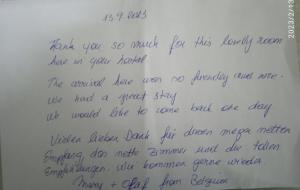 13.9.2023
Thank you so much for this lovely room
here in your hostel
The arrival here was so friendly and nice.
We had a great stay
We would like to come back one day
Vielen lieben Dank für deinen mega netten
Empfang, das nette Zimmer und die tollen
Empfehlungen. Wir kommen gerne wieder
+ Olaf from Belgium